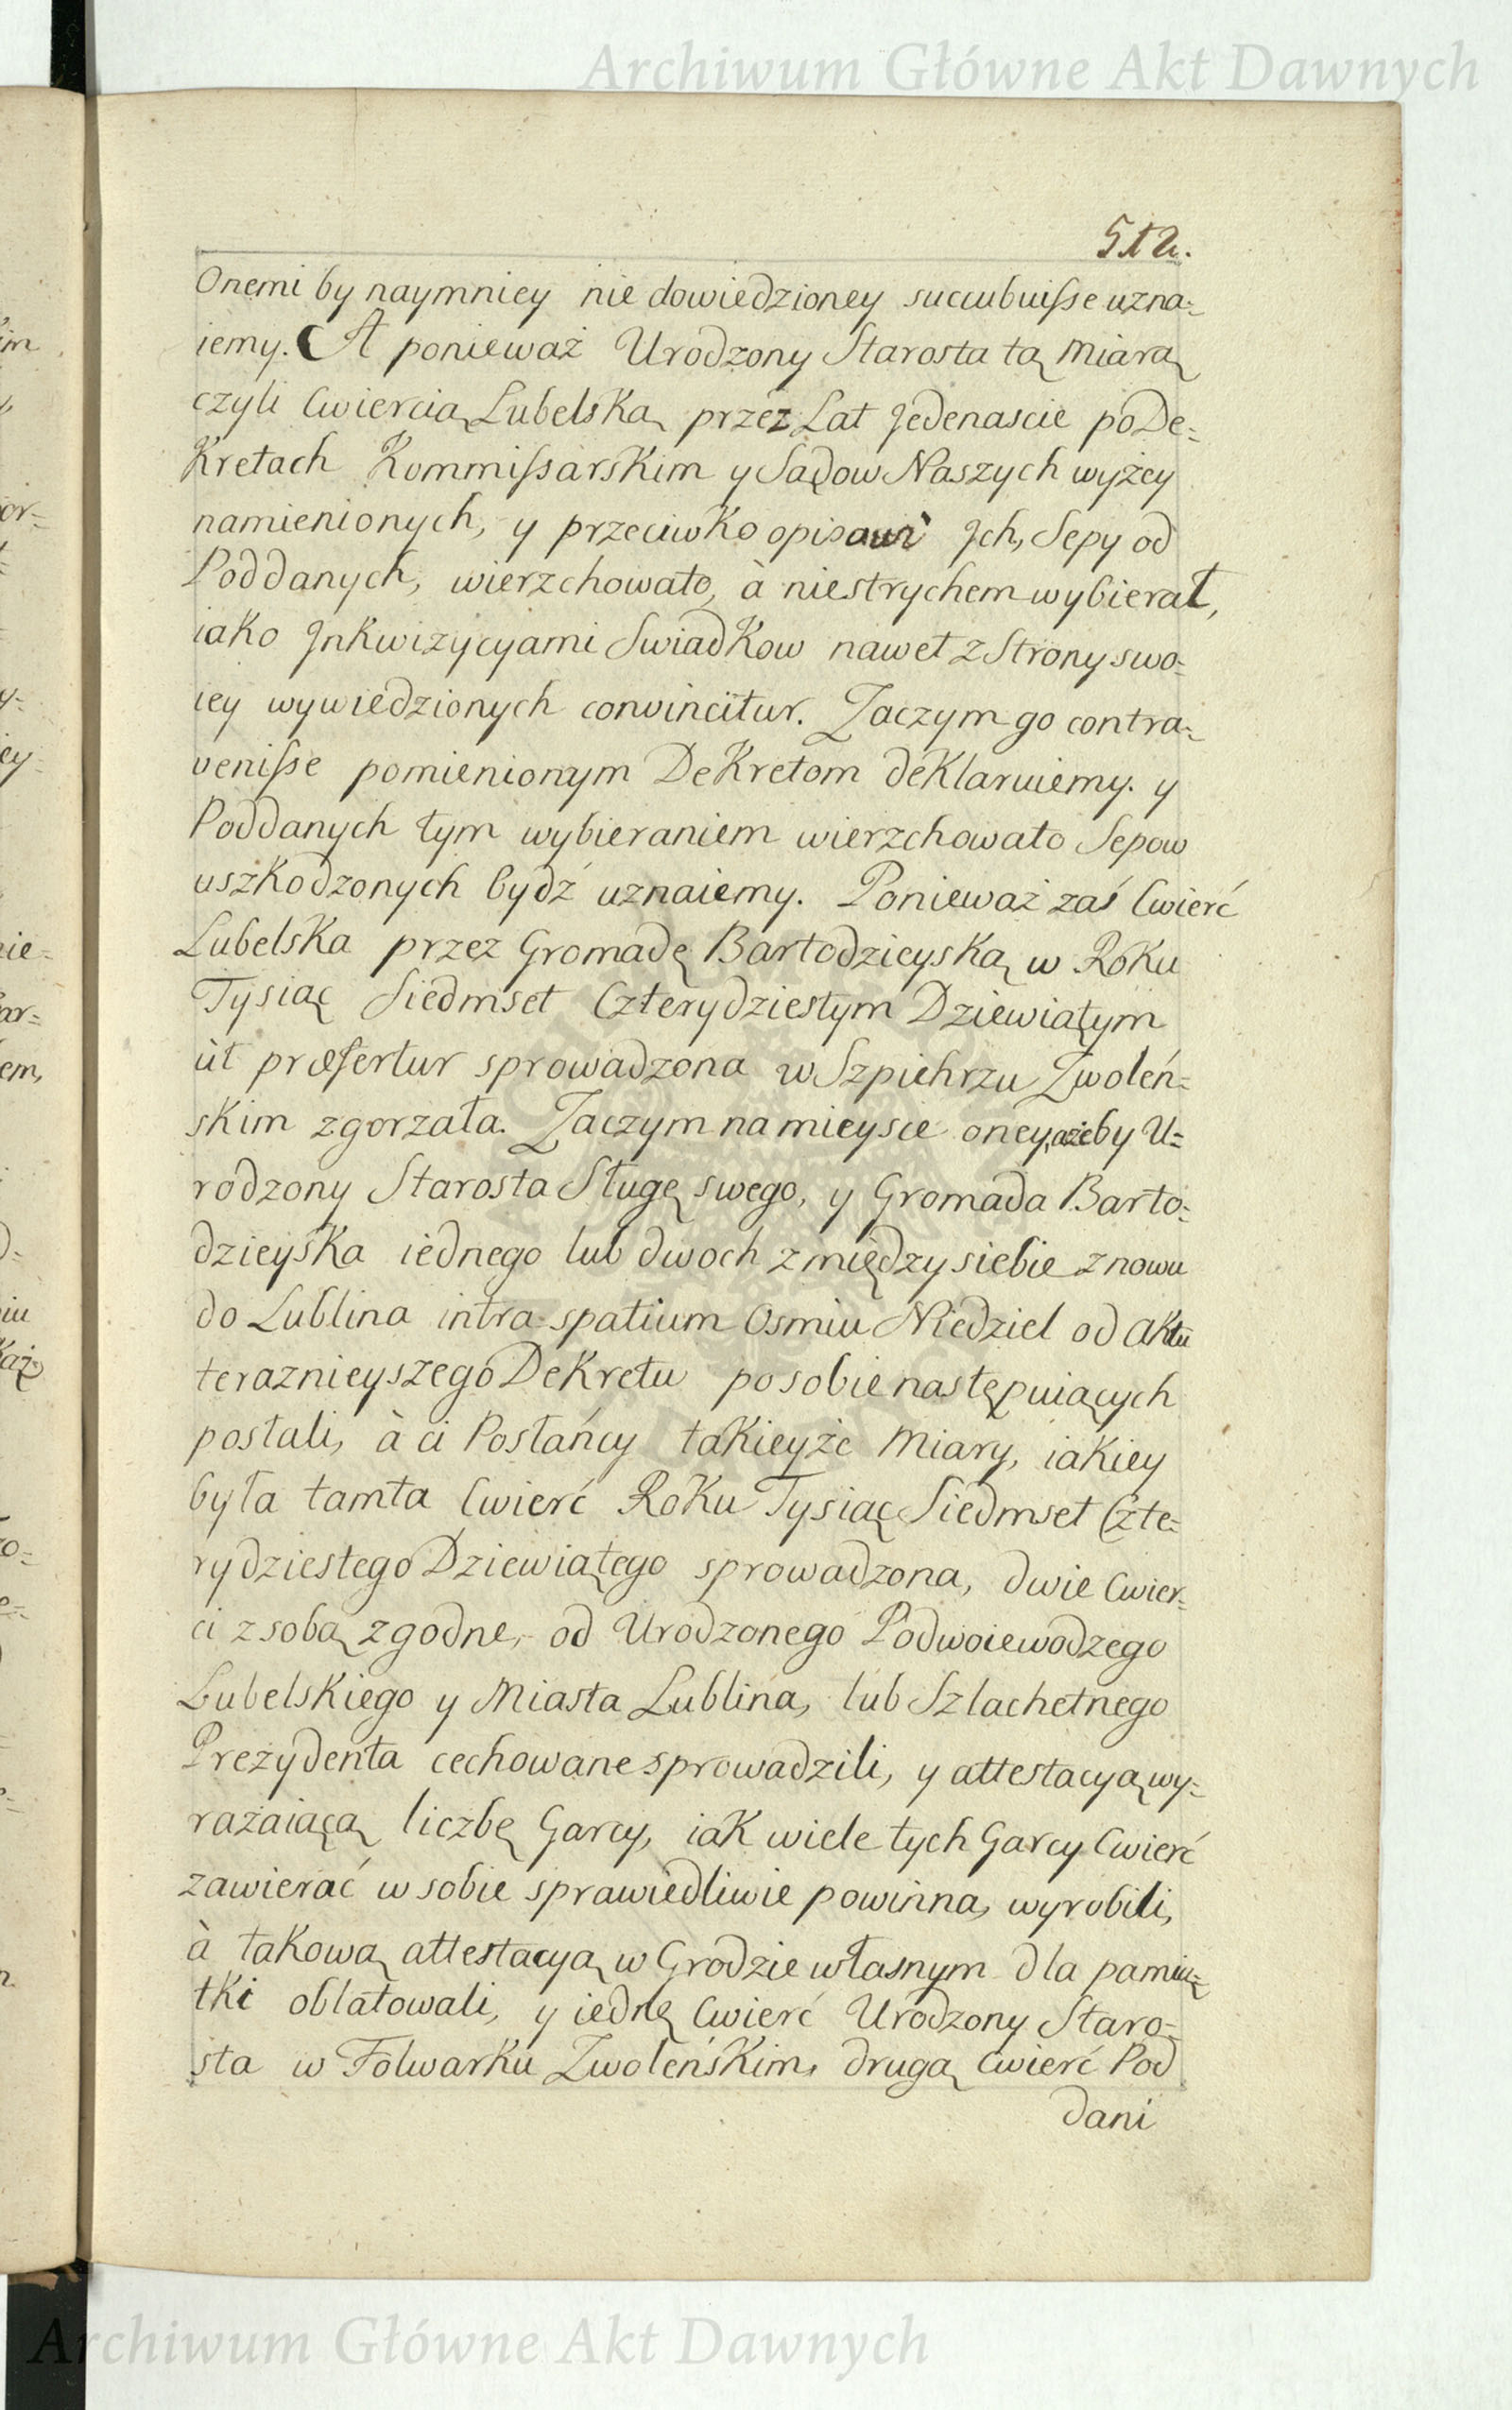 Archiwum Główne Akt Dawnych
512.
Onemi by naymniey nie dowiedzioney succubuiſse uzna=
iemy. A ponieważ Urodzony Starosta tą Miarą
czyli Cwiercią Lubelską przez Lat Jedenascie po De=
kretach Kommiſsarskim y Sądow Naszych wyżey
namienionych, y przeciwko opisowi Jch, Sepy od
Poddanych, wierzchowato, à niestrychem wybierał,
iako Jnkwizycyami Swiadkow nawet z Strony swo=
iey wywiedzionych convincitur. Zaczym go contra=
veniſse pomienionym Dekretom deklaruiemy. y
Poddanych tym wybieraniem wierzchowato Sepow
uszkodzonych bydź uznaiemy. Ponieważ zaś Cwierć
Lubelska przez Gromadę Bartodzieyską w Roku
Tysiąc Siedmset Czterydziestym Dziewiątym
ùt præfertur sprowadzona w Szpichrzu Zwoleń=
skim zgorzała. Zaczym na mieysce oney, ażeby U=
rodzony Starosta Sługę swego, y Gromada Barto=
dzieyska iednego lub dwoch z między siebie znowu
do Lublina intra spatium Osmiu Niedziel od Aktu
teraznieyszego Dekretu po sobie następuiących
postali, à ci Posłańcy takieyże Miary, iakiey
była tamta Cwierć Roku Tysiąc Siedmset Czte=
rydziestego Dziewiątego sprowadzona, dwie Cwier=
ci z sobą zgodne, od Urodzonego Podwoiewodzego
Lubelskiego y Miasta Lublina, lub Szlachetnego
Prezydenta cechowane sprowadzili, y attestacyą wy=
rażaiącą liczbę Garcy, iak wiele tych Garcy Cwierć
zawierać w sobie sprawiedliwie powinna, wyrobili,
à takową attestacyą w Grodzie własnym dla pamię
tki oblatowali, y iednę Cwierć Urodzony Staro=
sta w Folwarku Zwoleńskim, drugą Cwierć Pod
dani
Archiwum Główne Akt Dawnych